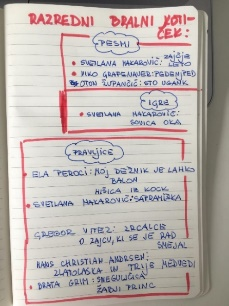 RAZREDNI BRALNI KOTI-
ČEK:
PESMI
• SVETLANA MAKAROVIČ: ZAJČJE
LETO
• NIKO GRAFENAUER: PEDENJPED
• OTON ŽUPANČIČ: STO UGANK
IGRE
• SVETLANA MAKAROVIČ:
SOVICA OKA
PRAVLJICE
• ELA PEROCI: MOJ DEŽNIK JE LAHKO
BALON
HIŠICA IZ KOCK
• SVETLANA MAKAROVIČ: SAPRAMIŠKA
GREGOR VITEZ: ZRCALCE
O ZAJCU, KI SE JE RAD
SMEJAL
HANS CHRISTIAN ANDERSEN:
ZLATOLASKA IN TRIJE MEDVEDI
BRATA GRIM: SNEGULJČICA
ŽABJI PRINC